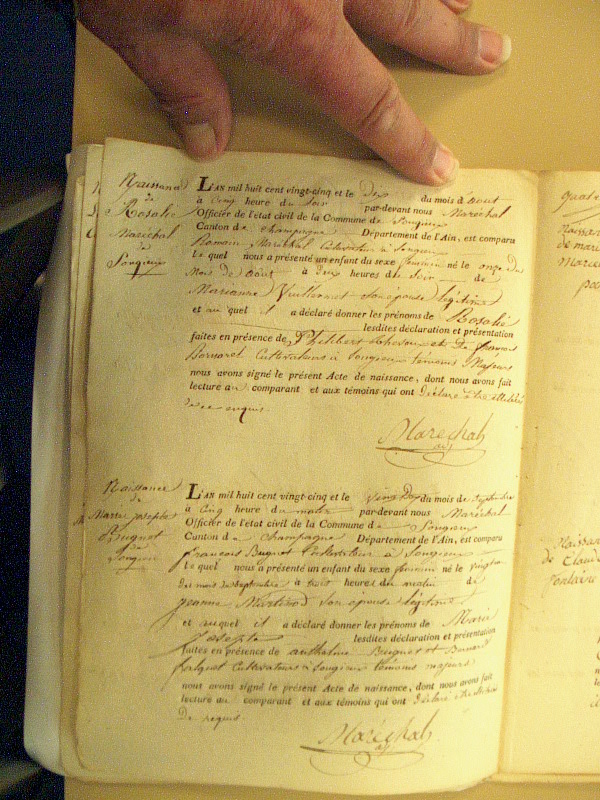 Naissance
de
Rosalie
Maréchal
de
Songieu
L'AN mil huit cent vingt-cinq et le du mois d'Août
à cinq heure du soir par-devant nous Maréchal
Officier de l'état civil de la Commune de Songieu
Canton de champagne Département de l'Ain, est comparu
Romain Maréchal Cultivateur à Songieu
lequel nous a présenté un enfant du sexe féminin né le onze du
Mois de Août à deux heures du soir de
Marianne Vuillermet son épouse légitime
et auquel il a déclaré donner les prénoms de Rosalie
lesdites déclaration et présentation
faites en présence de Philibert et de françois
Bernard Cultivateurs à Songieu témoins Majeurs
nous avons signé le présent Acte de naissance, dont nous avons fait
lecture au comparant et aux témoins qui ont Déclaré être illitérés
de ce enquis.
Maréchal
Naissance
de
Marie josephte
Bugnot
de
Songieu
L'AN mil huit cent vingt-cinq et le du mois de Septembre
à Cinq heure du matin par-devant nous Maréchal
Officier de l'état civil de la Commune de Songieu
Canton de champagne Département de l'Ain, est comparu
françois Bugnot Cultivateur à Songieu
lequel nous a présenté un enfant du sexe féminin né le
du mois de Septembre à heures du matin de
jeanne Martinod son épouse légitime
et auquel il a déclaré donner les prénoms de Marie
josephte lesdites déclaration et présentation
faites en présence de anthelme Bugnot et Bernard
falquet Cultivateurs à Songieu témoins majeurs
nous avons signé le présent Acte de naissance, dont nous avons fait
lecture au comparant et aux témoins qui ont déclaré être
De requis
Maréchal
quat
de mar
Naissan
de Claud
fontaine